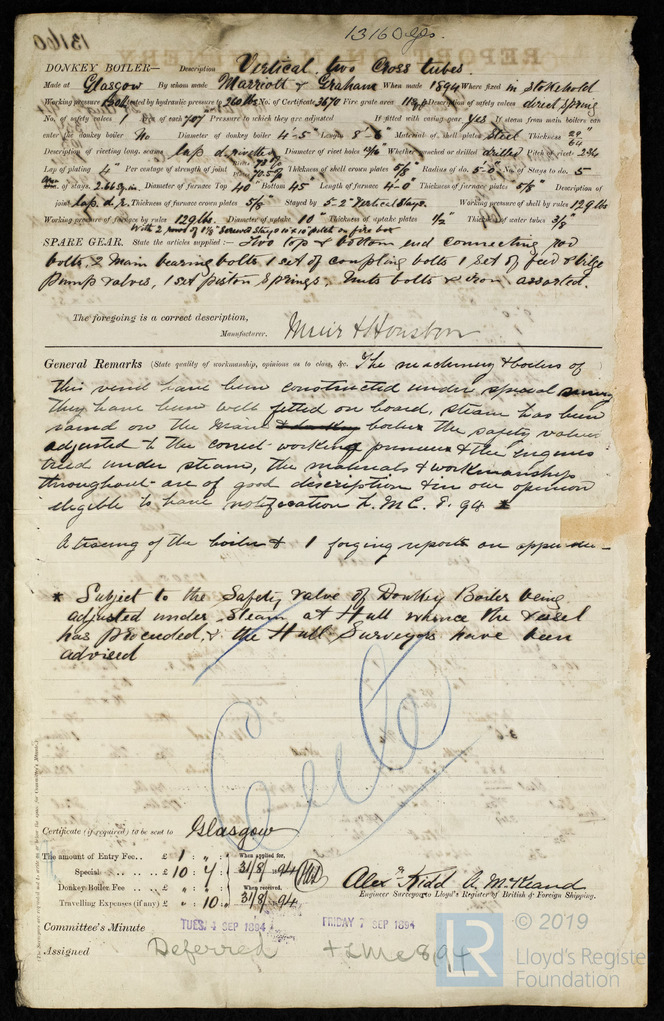 13160 Gls.
13160
DONKEY BOILER— Description Vertical, two Cross tubes.
Made at Glasgow By whom made Marriott & Graham When made 1894 Where fixed in Stokehold
Working pressure tested by hydraulic pressure to 260 lbs No. of Certificate 3670 Fire grate area Description of safety valves direct spring
No. of safety valves 1 Area of each 7.07" Pressure to which they are adjusted If fitted with easing gear Yes If steam from main boilers can
enter the donkey boiler No Diameter of donkey boiler 4-5" Length 8-6" Material of shell plates Steel Thickness 29/64"
Description of riveting long. seams lap d. rivetted Diameter of rivet holes 13/16" Whether punched or drilled drilled Pitch of rivets 2 3/4
Lap of plating 4" Per centage of strength of joint Rivets 73.0% Plates 70.5% Thickness of shell crown plates 5/8" Radius of do. 5'-0" No. of Stays to do. 5
Dia. of stays. 2.66 Sq. in. Diameter of furnace Top 40" Bottom 45" Length of furnace 4-0" Thickness of furnace plates 5/8" Description of
joint lap. d. r. Thickness of furnace crown plates 5/8" Stayed by 5-2" Vertical Stays. Working pressure of shell by rules 129 lbs
Working pressure of furnace by rules 129 lbs. Diameter of uptake 10" Thickness of uptake plates 1/2" Thickness of water tubes 3/8"
With 2 rows of 1 1/8" Screwed Stays 10"x10" pitch on fire box
SPARE GEAR. State the articles supplied:— Two top & bottom end connecting rod
bolts, 2 Main bearing bolts 1 set of coupling bolts 1 Set of feed & bilge
pump valves, 1 set piston Springs, Nuts bolts & iron assorted.
The foregoing is a correct description,
Manufacturer. Muir & Houston
General Remarks (State quality of workmanship, opinions as to class, &c. The machinery & boilers of
this vessel have been constructed under special survey
they have been well fitted on board, steam has been
raised on the Main & donkey boilers the safety valves
adjusted to the correct working pressure & the engines
tried under steam, the materials & workmanship
throughout are of good description & in our opinion
eligible to have notification L.M.C. 8. 94 *
A tracing of the boiler & 1 forging report are appended—
* Subject to the Safety valve of Donkey Boiler being
adjusted under Steam at Hull whence the vessel
has proceeded, & the Hull Surveyors have been
advised
Certificate (if required) to be sent to Glasgow
The amount of Entry Fee.. £ 1 : " : When applied for,
Special .. .. £ 10 : 4 : 31/8/94
Donkey Boiler Fee .. .. £ " : " : When received,
Travelling Expenses (if any) £ " : 10 : 31/8/94
Alex Kidd A. McKeand
Engineer Surveyors to Lloyd's Register of British & Foreign Shipping.
Committee's Minute TUES. 4 SEP 1894 FRIDAY 7 SEP 1894
Assigned Deferred + LMC 8,94
LR © 2019
Lloyd's Register
Foundation